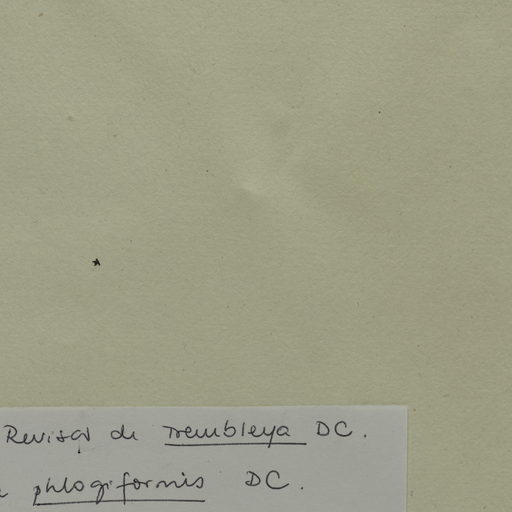 Revisão de Trembleya DC.
phlogiformis DC.